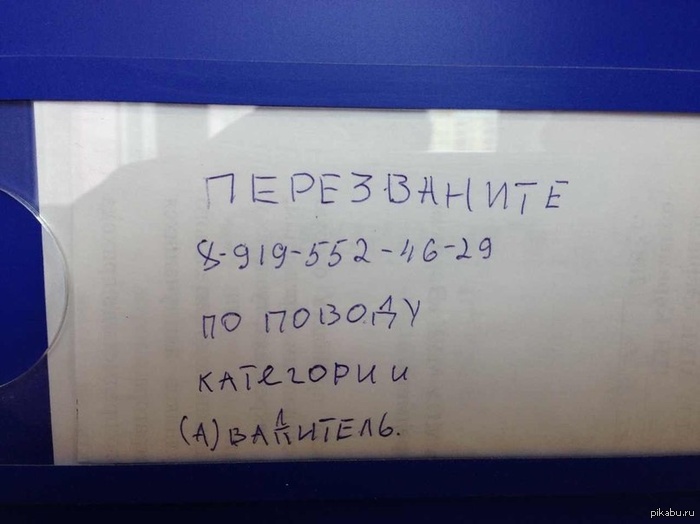 ПЕРЕЗВАНИТЕ
8-919-552-46-29
ПО ПОВОДУ
КАТЕГОРИИ
(А) ВАЛИТЕЛЬ.
pikabu.ru